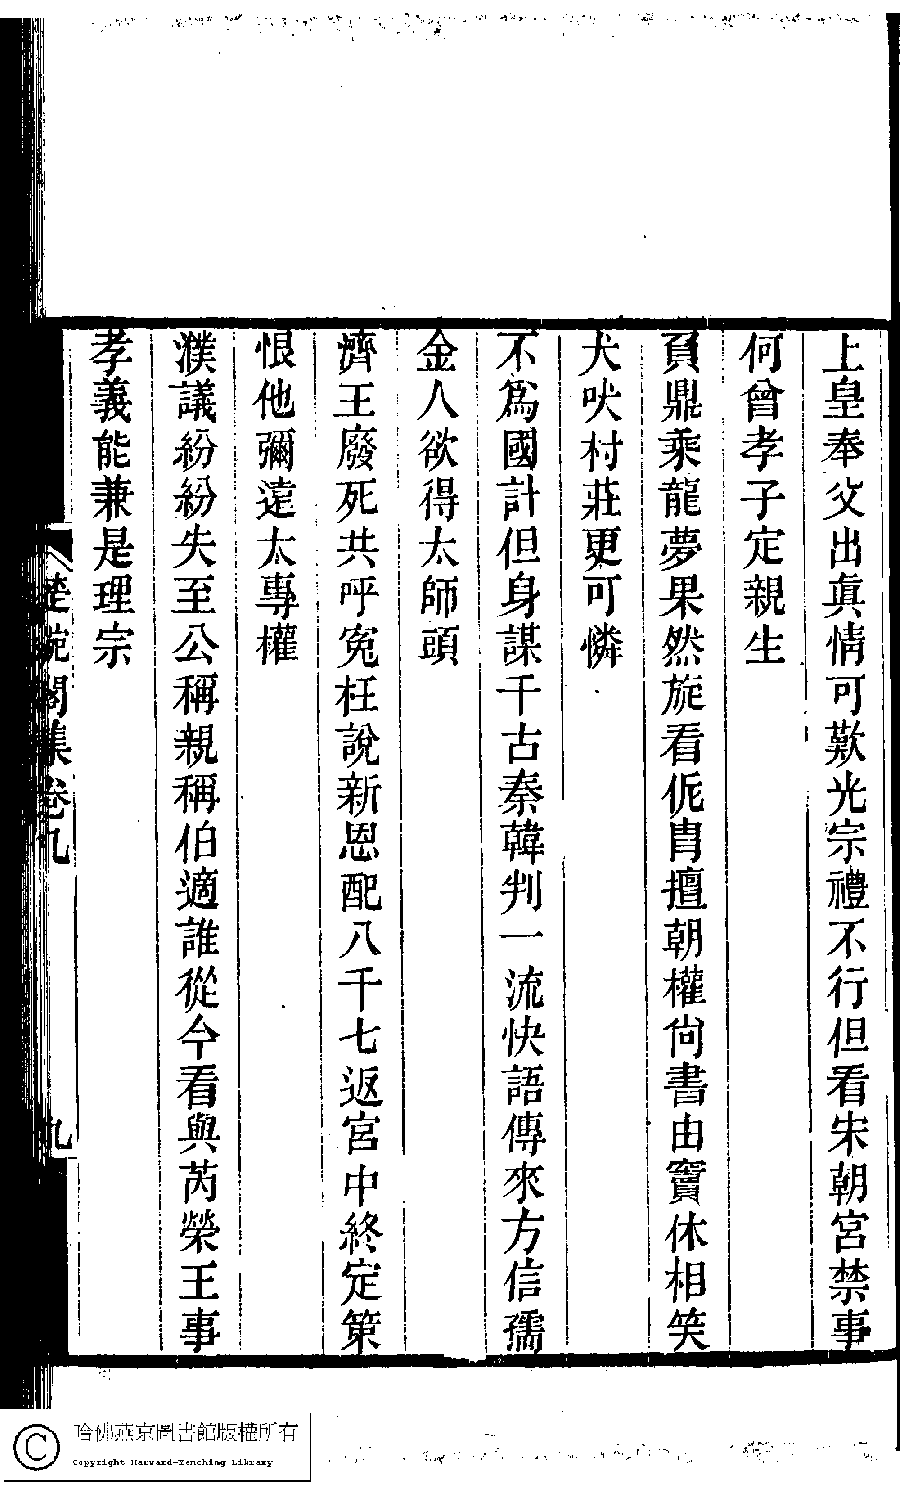 上皇奉父出眞情可歎光宗禮不行但看宋朝宮禁事
何曾孝子定親生
負鼎乘龍夢果然旋看侂冑擅朝權尙書由竇休相笑
犬吠村莊更可憐
不爲國計但身謀千古秦韓判一流快語傳來方信孺
金人欲得太師頭
濟王廢死共呼寃枉說新恩配八千七返宮中終定策
恨他彌遠太專權
濮議紛紛失至公稱親稱伯適誰從今看與芮榮王事
孝義能兼是理宗
楚蜿閣集卷九
九
哈佛燕京圖書館版權所有
Copyright Harvard-Yenching Library